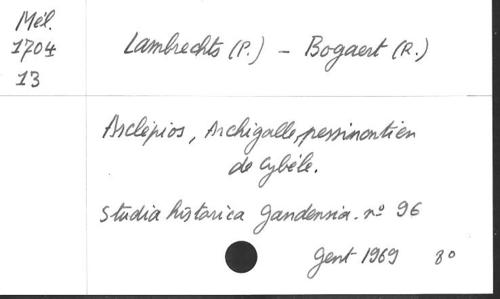 Mél.
1704
13
Lambrechts (P.) - Bogaert (R.)
Asclépios, Archigalle pessinontien
de Cybèle.
Studia historica Gandensia. nº 96
Gent 1969 8º